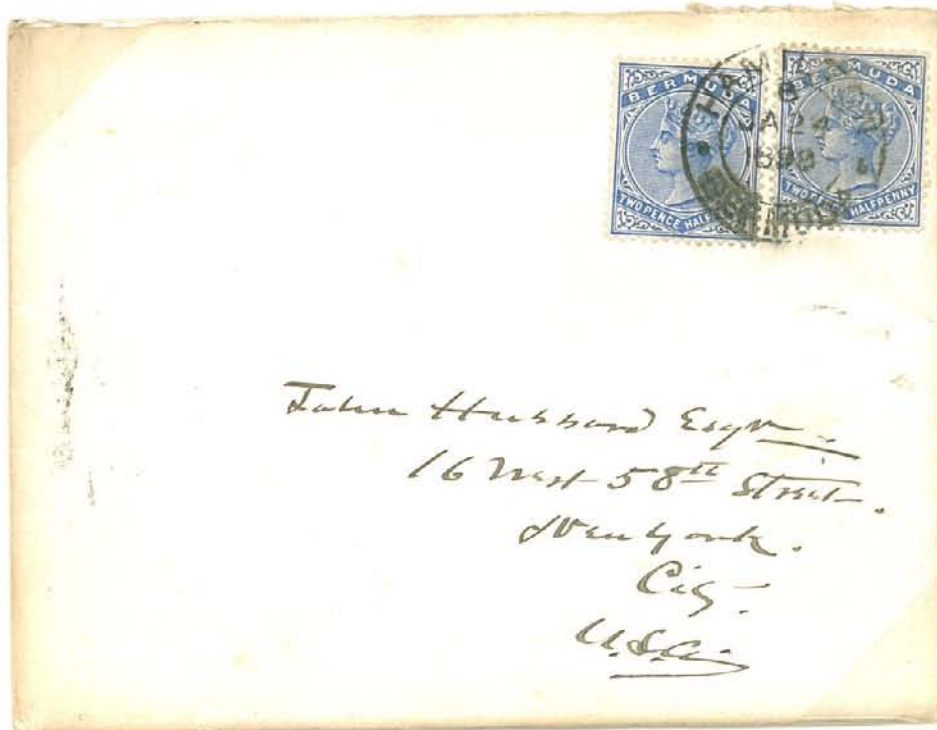 BERMUDA
TWO PENCE HALF
BERMUDA
HALFPENNY
HAM
JA 24
BERMUDA
John Hubbard Esqr
16 West 58th Street.
New York.
City.
U.S.A.